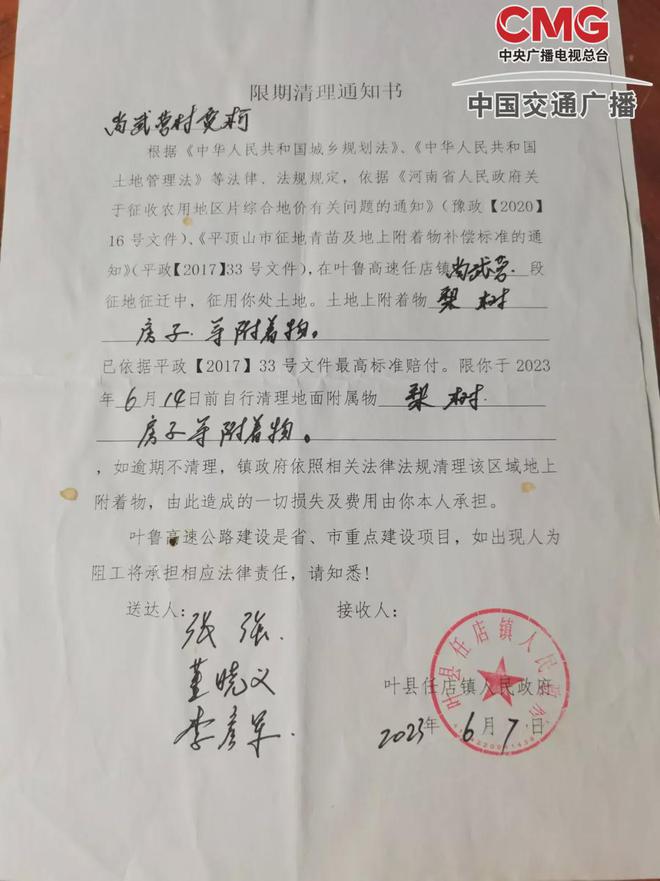 CMG
中央广播电视总台
中国交通广播
限期清理通知书
尚武营村
根据《中华人民共和国城乡规划法》、《中华人民共和国
土地管理法》等法律、法规规定，依据《河南省人民政府关
于征收农用地区片综合地价有关问题的通知》（豫政【2020】
16号文件）、《平顶山市征地青苗及地上附着物补偿标准的通
知》（平政【2017】33号文件），在叶鲁高速任店镇尚武营.段
征地征迁中，征用你处土地。土地上附着物 梨 树
房子.等附着物。
已依据平政【2017】33号文件最高标准赔付。限你于2023
年6月14日前自行清理地面附属物 梨 树.
房子等附着物。
，如逾期不清理，镇政府依照相关法律法规清理该区域地上
附着物，由此造成的一切损失及费用由你本人承担。
叶鲁高速公路建设是省、市重点建设项目，如出现人为
阻工将承担相应法律责任，请知悉！
送达人： 接收人：
张 强.
董晓义
李彦军.
叶县任店镇人民政府
叶县任店镇人民政府
2023年6月7日